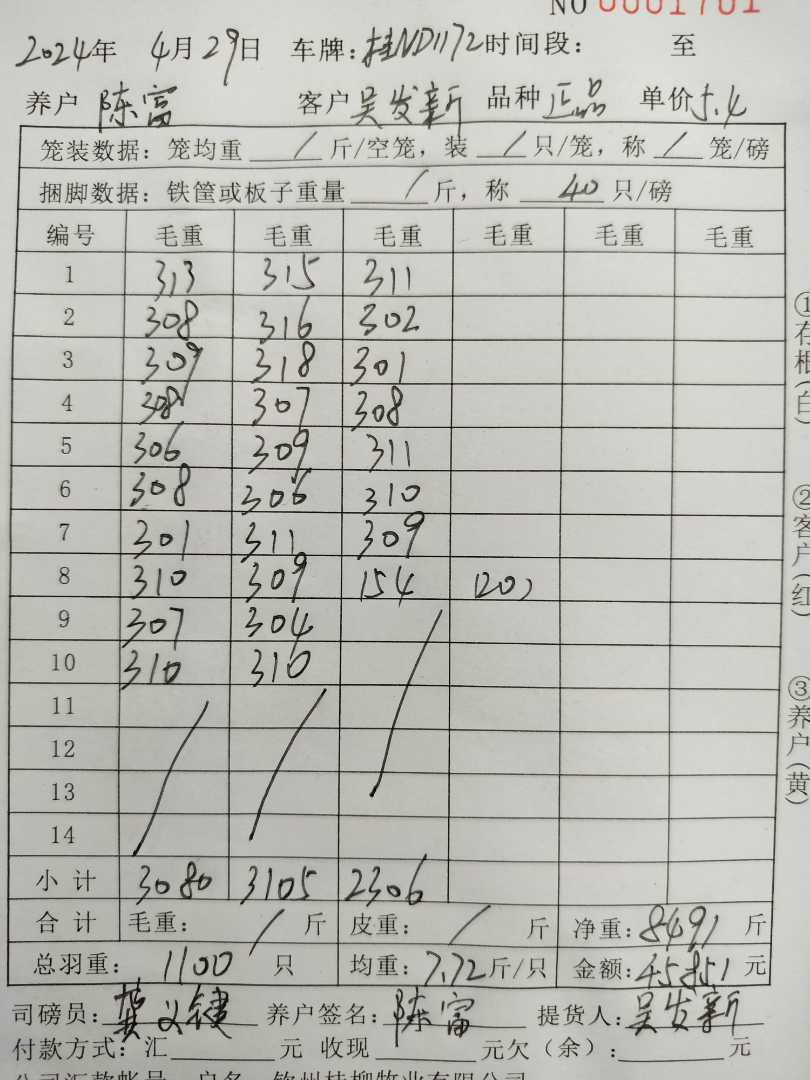 NO 0001701
2024年 4月29日 车牌:桂ND1172时间段: 至
养户 陈富 客户 吴发新 品种 正品 单价5.4
笼装数据:笼均重 / 斤/空笼,装 / 只/笼,称 / 笼/磅
捆脚数据:铁筐或板子重量 / 斤,称 40 只/磅
编号 毛重 毛重 毛重 毛重 毛重 毛重
1 313 315 311
2 308 316 302
3 309 318 301
4 308 307 308
5 306 309 311
6 308 306 310
7 301 311 309
8 310 309 154 (20)
9 307 304
10 310 310
11
12
13
14
小计 3080 3105 2306
合计 毛重: / 斤 皮重: / 斤 净重:8491 斤
总羽重: 1100 只 均重:7.72斤/只 金额:45851元
司磅员:龚义键 养户签名:陈富 提货人:吴发新
付款方式:汇 元 收现 元欠(余): 元
①存根(白)
②客户(红)
③养户(黄)